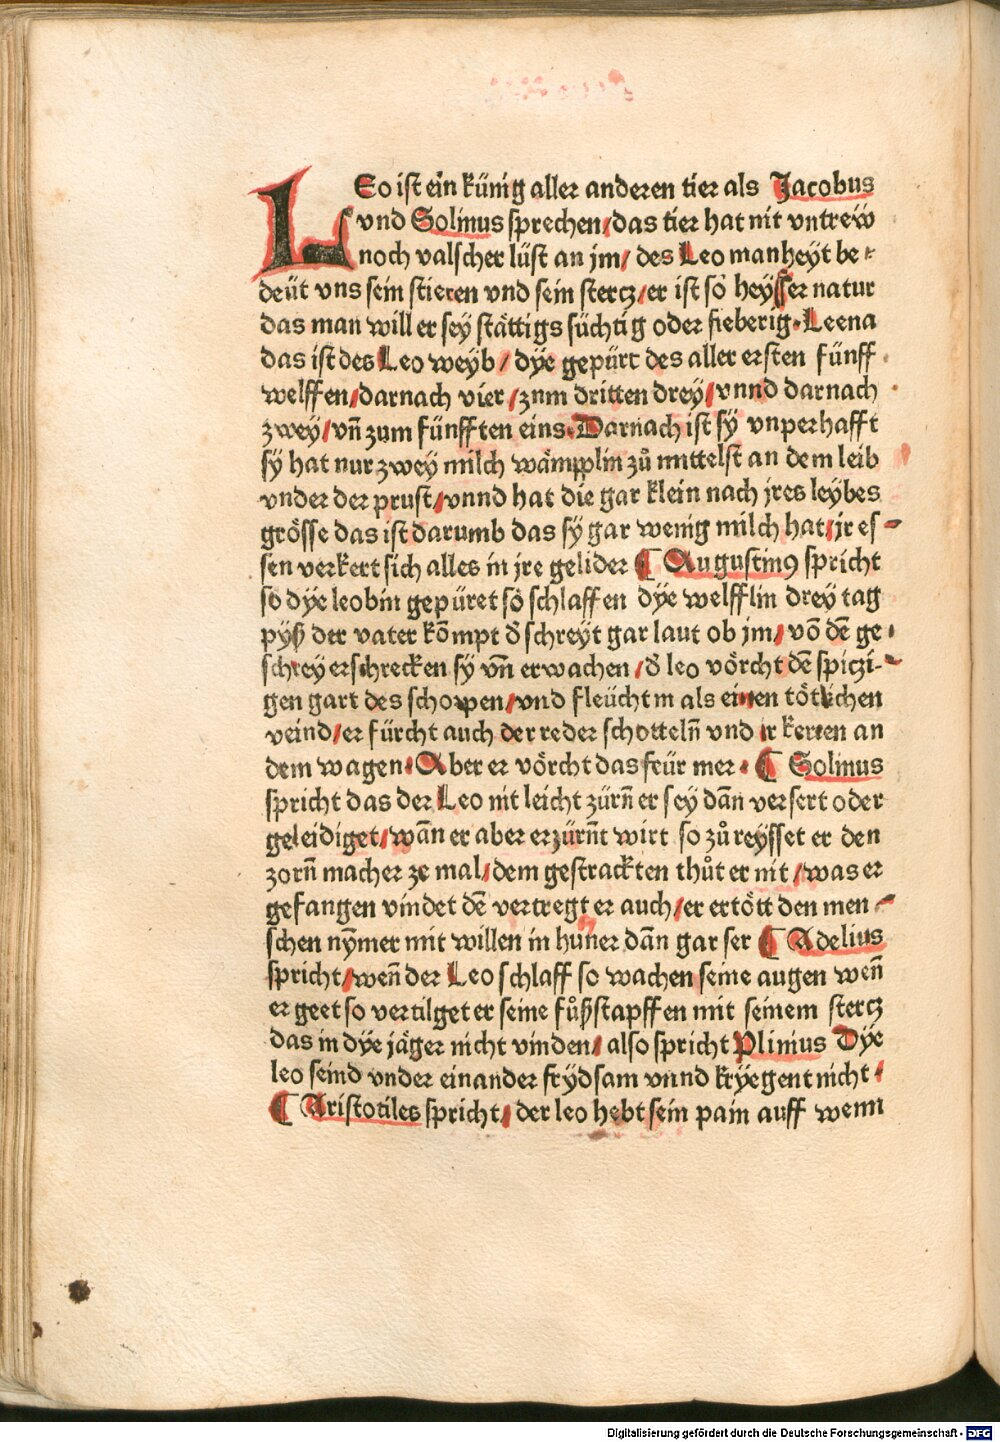 LEo ist ein künig aller anderen tier als Jacobus
vnd Solinus sprechen/das tier hat nit vntrew
noch valscher lüst an jm/ des Leo manheyt be-
deüt vns sein stieren vnd sein stercz/er ist so heysser natur
das man will er sey stättigs süchtig oder fieberig. Leena
das ist des Leo weyb/ dye gepürt des aller ersten fünff
welffen/darnach vier/zum dritten drey/vnnd darnach
zwey/vn̄ zum fünfften eins. Darnach ist sy vnperhafft
sy hat nur zwey milch wämpplin zů mittelst an dem leib
vnder der prust/vnnd hat die gar klein nach jres leybes
grösse das ist darumb das sy gar wenig milch hat/jr es-
sen verkert sich alles in jre gelider ¶ Augustinꝰ spricht
so dye leobin gepüret so schlaffen dye welfflin drey tag
pyß der vater kompt ď schreyt gar laut ob jm/ vō dē ge
schrey erschrecken sy vn̄ erwachen/ď leo vörcht dē spiczi-
gen gart des schorpen/vnd fleücht in als einen tötlichen
veind/er fürcht auch der reder schotteln̄ vnd ir kerren an
dem wagen. Aber er vörcht das feür mer. ¶ Solinus
spricht das der Leo nit leicht zürn̄ er sey dan̄ versert oder
geleidiget/wan̄ er aber erzürn̄t wirt so zů reysset er den
zorn̄ macher ze mal/dem gestrackten thůt er nit/was er
gefangen vindet dē vertregt er auch/er ertött den men-
schen nȳmer mit willen in huner dan̄ gar ser ¶ Adelius
spricht/wen̄ der Leo schlaff so wachen seine augen wen̄
er geet so vertilget er seine fůßstapffen mit seinem stercz
das in dye jäger nicht vinden/ also spricht Plinius Dye
leo seind vnder einander frydsam vnnd kryegent nicht.
¶ Aristotiles spricht/ der leo hebt sein pain auff wenn
Digitalisierung gefördert durch die Deutsche Forschungsgemeinschaft - DFG